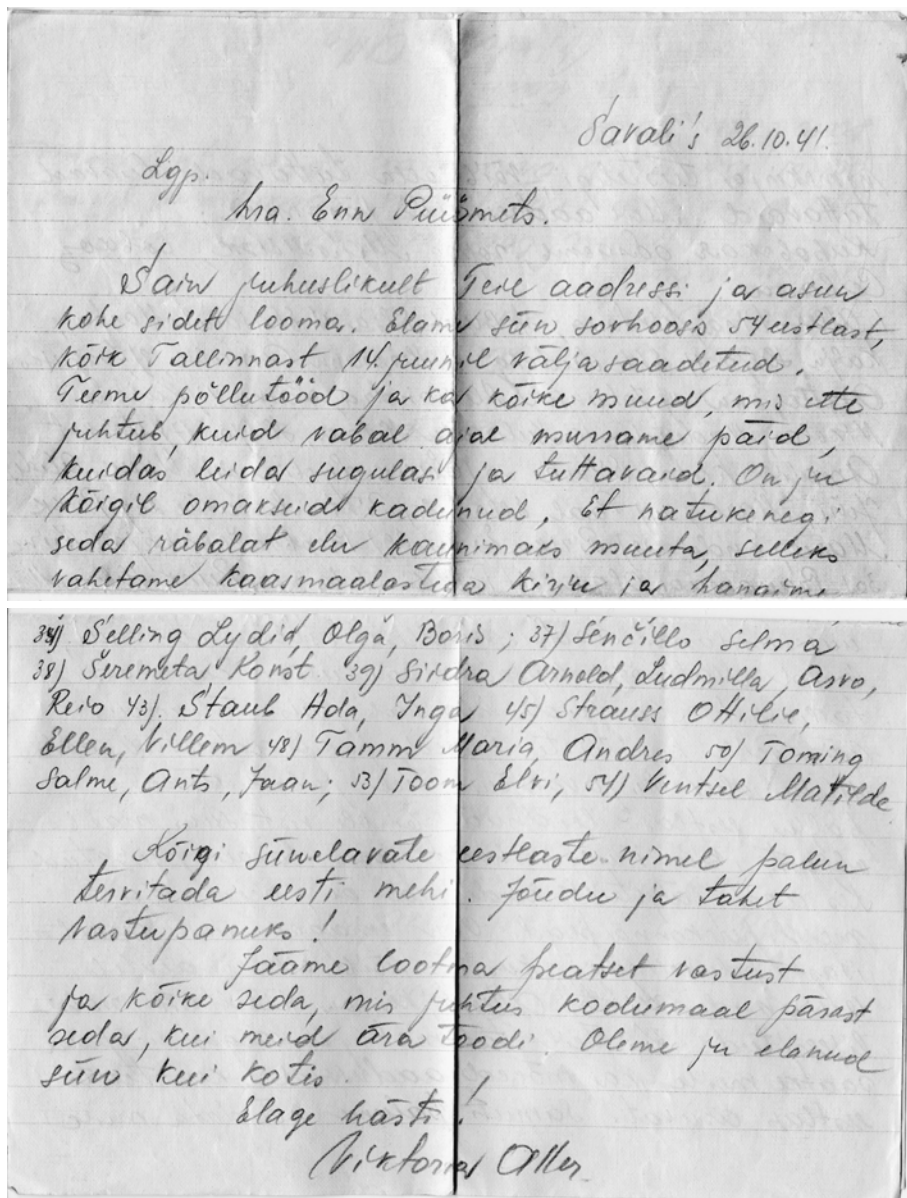 Savali's 26.10.41.
Lgp.
hra. Enn Püümets.
Sain juhuslikult Teie aadressi ja asun
kohe sidet looma. Elame siin sovhoosis 54 eestlast,
kõik Tallinnast 14. juunil välja saadetud.
Teeme põllutööd ja ka kõike muud, mis ette
juhtub, kuid vabal ajal murrame päid,
kuidas leida sugulasi ja tuttavaid. On ju
kõigil omakseid kadunud. Et natukenegi
seda räbalat elu kaunimaks muuta, selleks
vahetame kaasmaalastega kirju ja hangime
Selling Lydia, Olga, Boris; 37) Senčillo Selma
38) Šeremeta Konst. 39) Siidra Arnold, Ludmilla, Arvo,
Reio 43). Staub Ada, Inga 45) Strauss Ottilie,
Ellen, Villem 48) Tamm Maria, Andres 50) Toming
Salme, Ants, Jaan; 53) Toom Elvi, 54) Ventsel Matilde
Kõigi siinelavate eestlaste nimel palun
tervitada eesti mehi. Jõudu ja tahet
vastupanuks!
Jääme lootma peatset vastust
ja kõike seda, mis juhtus kodumaal pärast
seda, kui meid ära toodi. Oleme ju elanud
siin kui kotis.
Elage hästi!
Viktoria Aller.